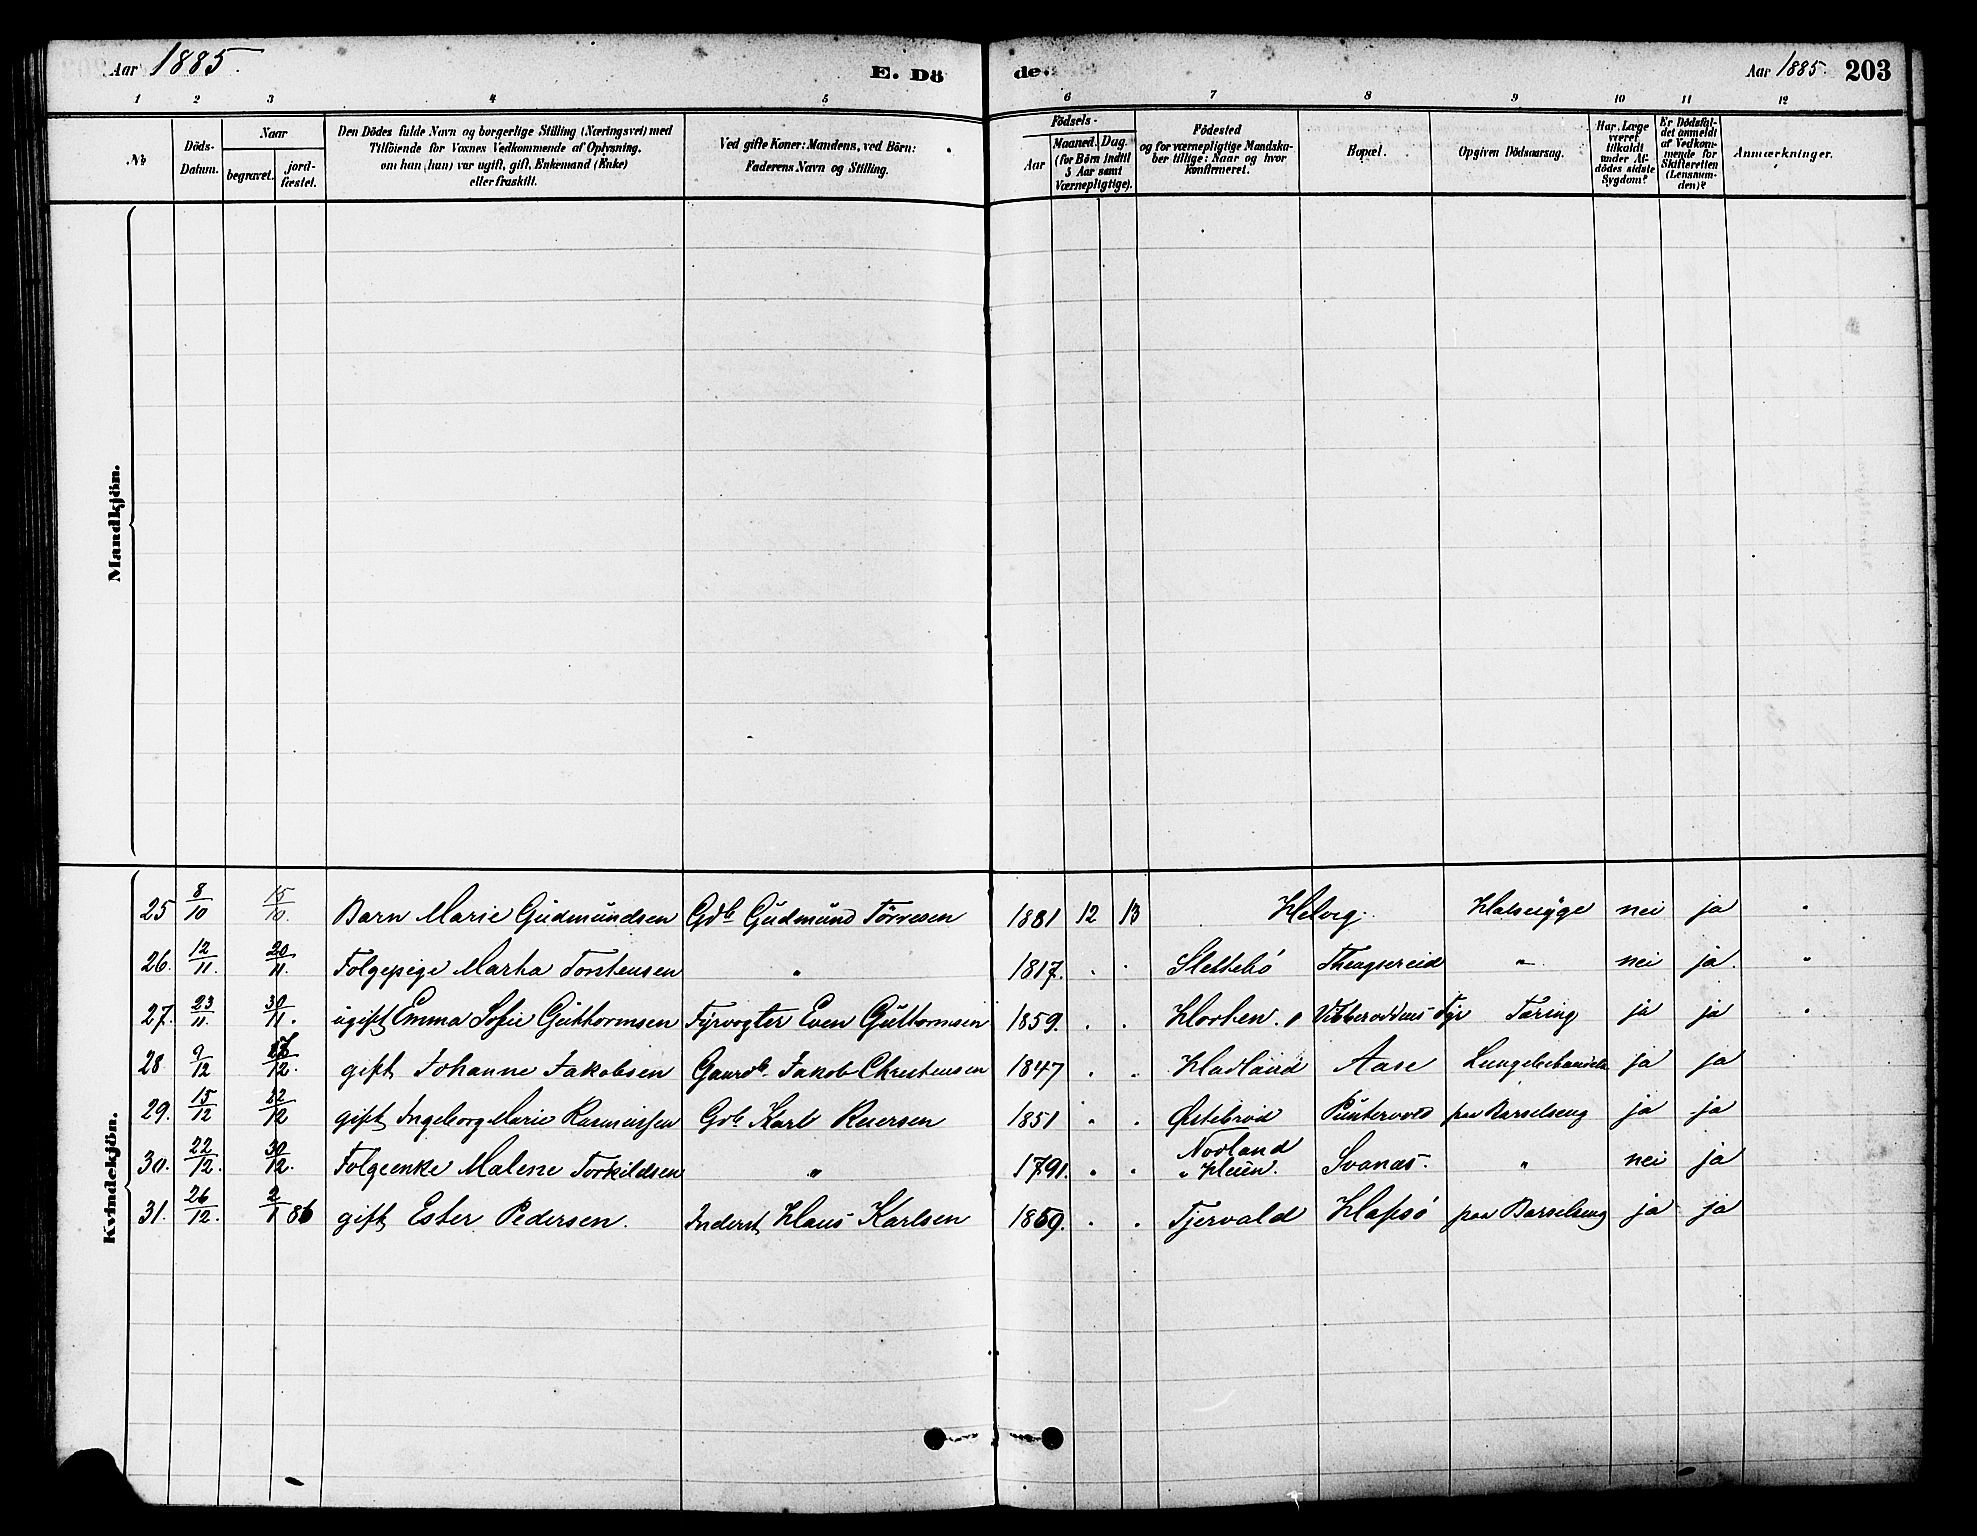 Aar 1885.
E. Dö
de.
Aar 1885. 203
1 2 3 4 5 6 7 8 9 10 11 12
No
Döds-
Datum.
Naar
begravet.
jord-
fæstet.
Den Dödes fulde Navn og borgerlige Stilling (Næringsvei) med
Tilföiende for Voxnes Vedkommende af Oplysning,
om han (hun) var ugift, gift, Enkemand (Enke)
eller fraskilt.
Ved gifte Koner: Mandens, ved Börn:
Faderens Navn og Stilling.
Födsels-
Aar
Maaned. Dag.
(for Börn indtil
5 Aar samt
Værnepligtige).
Födested
og for værnepligtige Mandska-
ber tillige: Naar og hvor
konfirmeret.
Bopæl.
Opgiven Dödsaarsag.
Har Læge
været
tilkaldt
under Af-
dödes sidste
Sygdom?
Er Dödsfal-
det anmeldt
af Vedkom-
mende for
Skifteretten
(Lensman-
den)?
Anmærkninger.
Mandkjön.
Kvindekjön.
25 8/10 15/10. Barn Marie Gudmundsen Gdb Gudmund Törresen 1881 12 13 Helvig. Halssyge nei ja "
26. 12/11. 20/11. Folgepige Marta Torstensen " 1817. . . Slettebö Theagsereid " nei ja. "
27. 23/11. 30/11. ugift Emma Sofie Guttormsen Fyrvogter Even Guttormsen 1859. . . Vibberoddens Fyr Tæring ja ja "
28 9/12 12. gift Johanne Jakobsen Gaardb. Jakob Christensen 1847 . . Hadland Aase ja ja
29. 15/12 22/12 gift Ingeborg Marie Rasmussen Gdb Karl Reiersen 1851 . . Østebröd Puntervold paa Barselseng ja ja
30. 22/12. 30/12. Folgeenke Malene Torkildsen " 1791. . . Nodland
i Heien. Svanæs. " nei ja
31. 26/12. 2/1 86 gift Ester Pedersen. Inderst Klaus Karlsen 1859. . . Tjervald Hafsö paa Barselseng ja ja